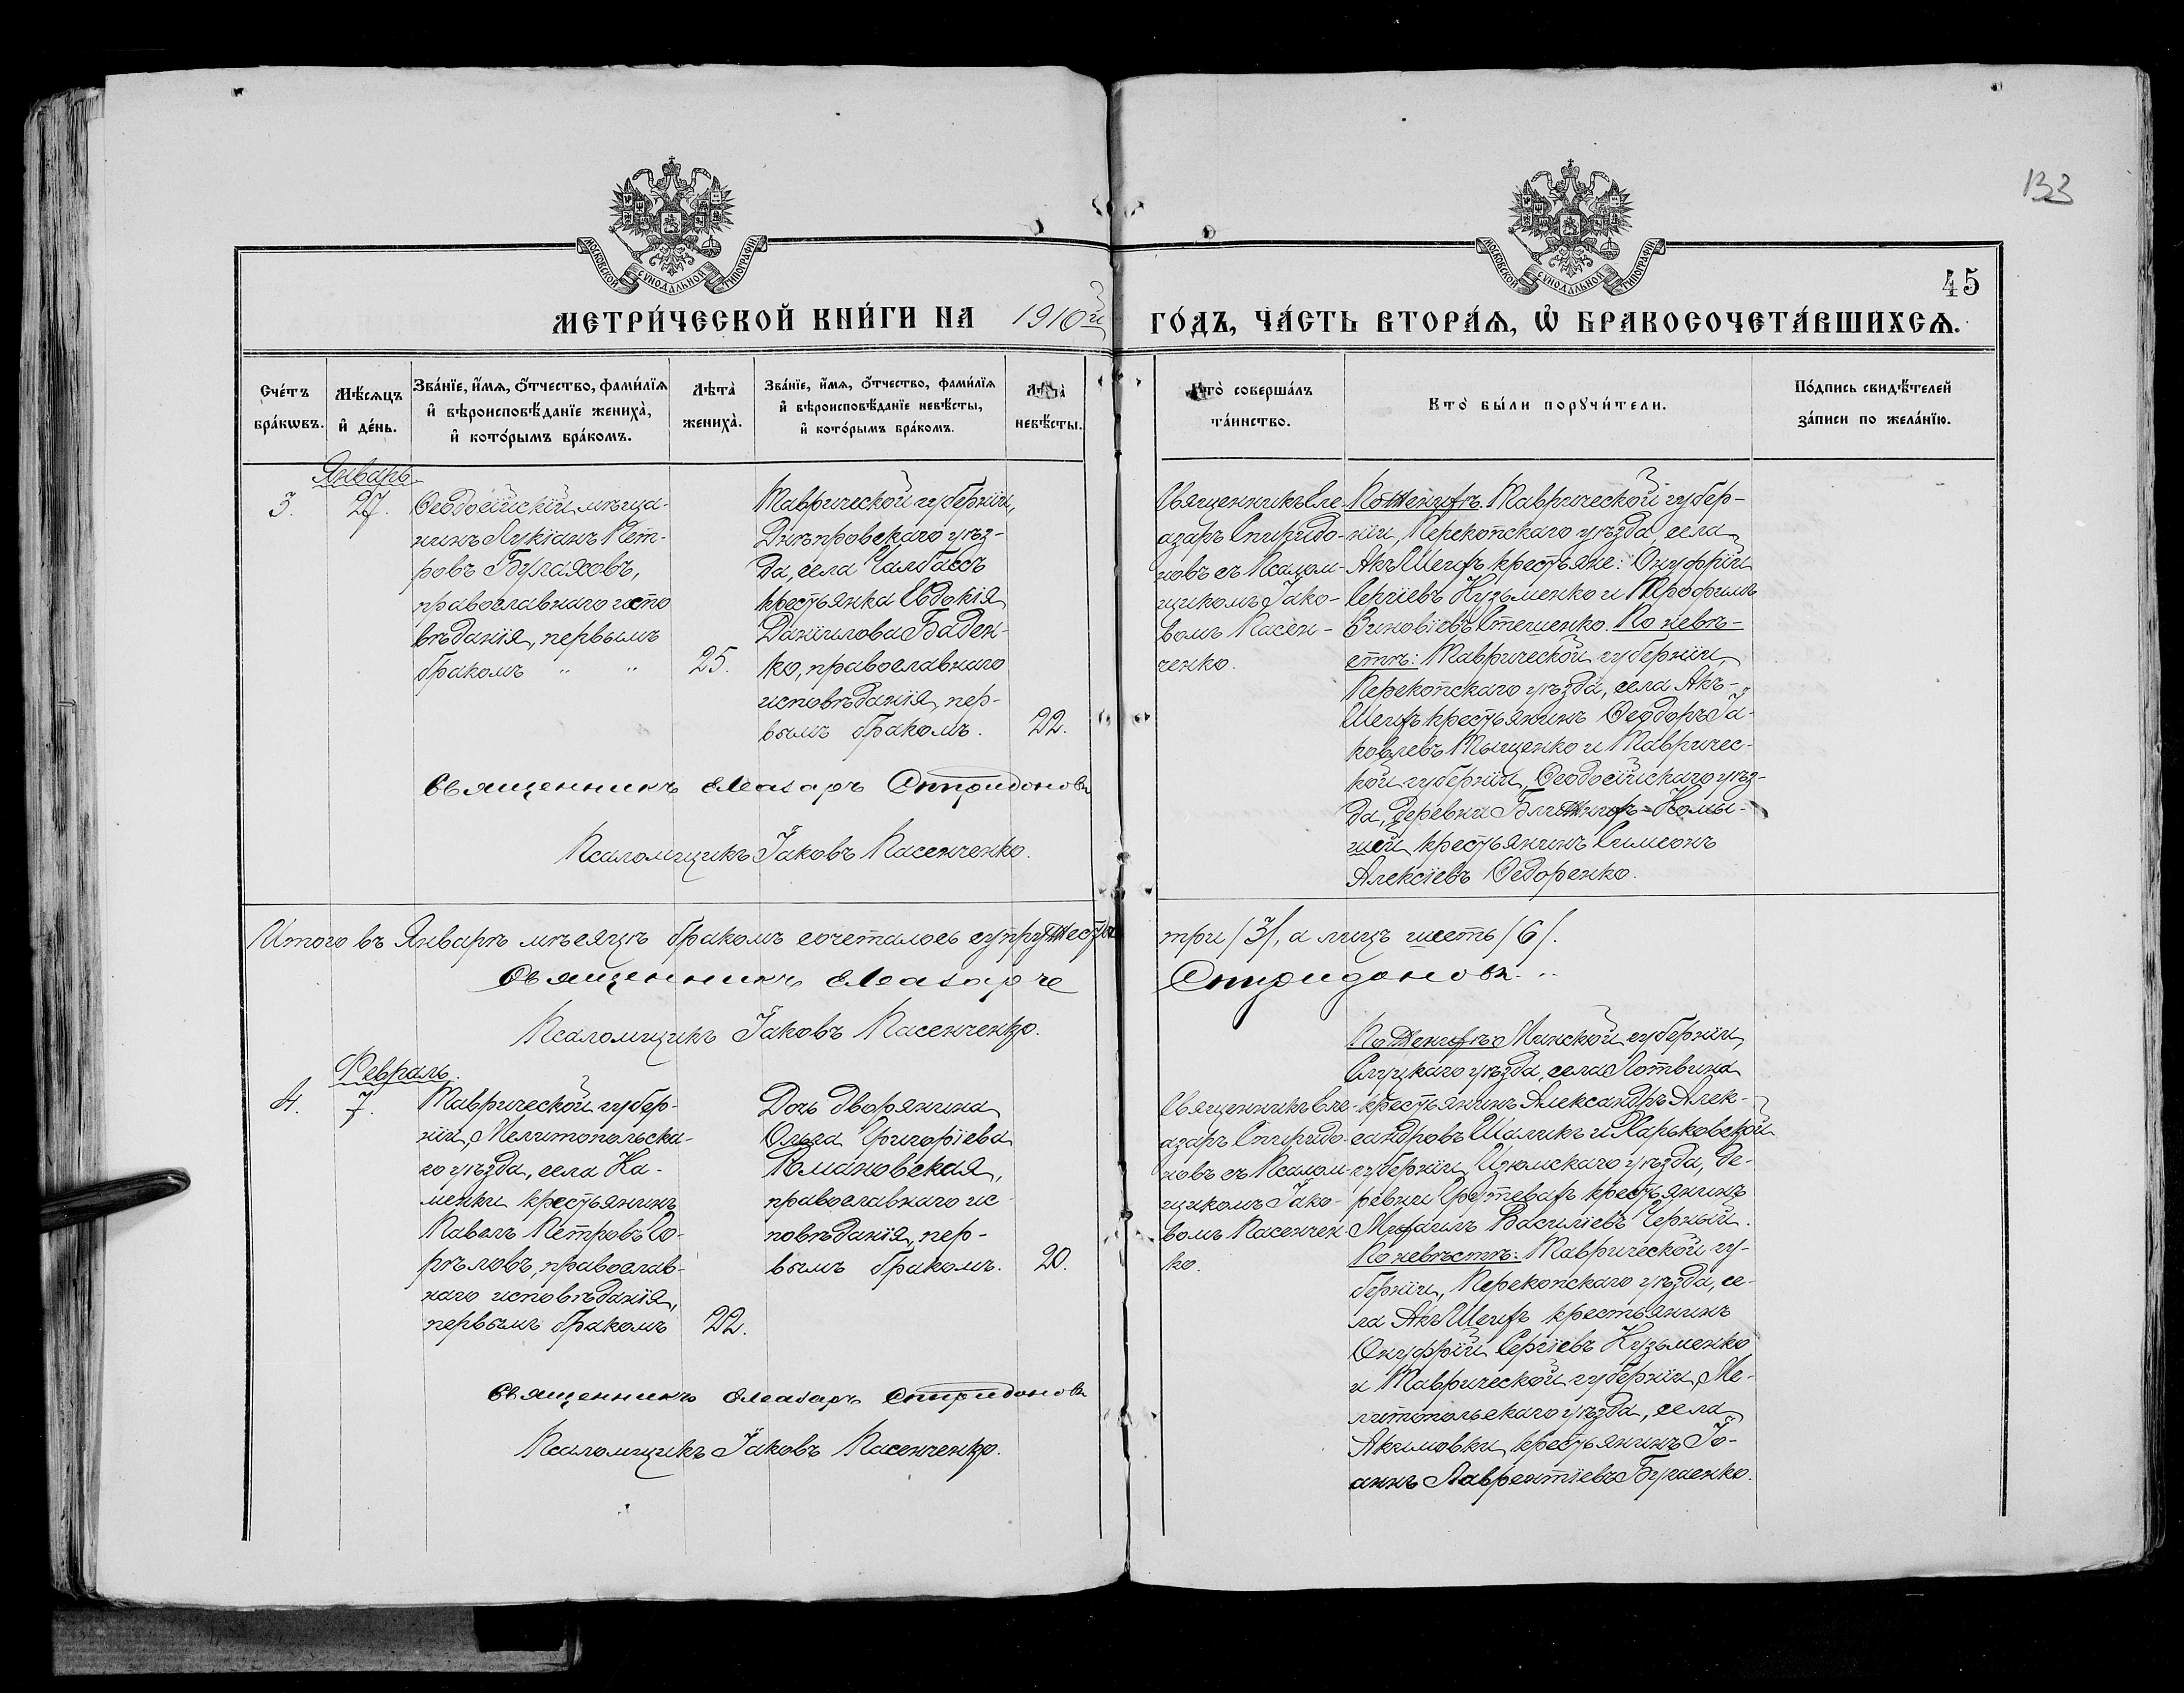 133
МОСКОВСКОЙ СѴНОДАЛЬНОЙ ТИПОГРАФІИ
МОСКОВСКОЙ СѴНОДАЛЬНОЙ ТИПОГРАФІИ
45
МЕТРИ́ЧЕСКОЙ КНИ́ГИ НА 1910й
ГО́ДЪ, ЧА́СТЬ ВТОРА́Ѧ, Ѽ БРАКОСОЧЕТА́ВШИХСѦ.
Сче́тъ
бра́кѡвъ.
Мѣ́сѧцъ
и҆ де́нь.
Зва́нїе, и҆́мѧ, ѻ҆́тчество, фами́лїѧ
и҆ вѣроисповѣ́данїе жениха̀,
и҆ кото́рымъ бра́комъ.
Лѣта̀
жениха̀.
Зва́нїе, и҆́мѧ, ѻ҆́тчество, фами́лїѧ
и҆ вѣроисповѣ́данїе невѣ́сты,
и҆ кото́рымъ бра́комъ.
Лѣта̀
невѣ́сты.
Кто̀ соверша́лъ
та́инство.
Кто̀ бы́ли порꙋчи́тели.
По́дпись свидѣ́телей
за́писи по жела́нїю.
Январь
3.
27.
Ѳеодосійскій мѣща-
нинъ Лукіанъ Пет-
ровъ Булаховъ,
православнаго испо
вѣданія, первымъ
бракомъ " "
25.
Таврической губерніи,
Днѣпровскаго уѣз-
да, села Чалбасъ
крестьянка Евдокія
Даніилова Баден-
ко, православнаго
исповѣданія, пер-
вымъ бракомъ.
22.
Священникъ Еле-
азаръ Спиридо-
новъ съ Псалом-
щикомъ Іако-
вомъ Пасен-
ченко.
По женихѣ: Таврической губер-
ніи, Перекопскаго уѣзда, села
Акъ Шеихъ крестьяне: Онуфрій
Сергіевъ Кузьменко и Трофимъ
Зиновіевъ Стешенко. По невѣ-
стѣ: Таврической губерніи,
Перекопскаго уѣзда, села Акъ-
Шеихъ крестьянинъ Ѳеодоръ Іа-
ковлевъ Тыщенко и Тавричес-
кой губерніи, Ѳеодосійскаго уѣз-
да, деревни
шей крестьянинъ Симеонъ
Алексіевъ Ѳедоренко.
Священникъ Елеазаръ Спиридоновъ
Псаломщикъ Іаковъ Пасенченко.
Итого въ Январѣ мѣсяцѣ бракомъ сочеталось супружествъ три /3/, а лицъ шесть /6/.
Священникъ Елеазаръ Спиридоновъ.
Псаломщикъ Іаковъ Пасенченко.
Февраль.
4.
7.
Таврической губер-
ніи, Мелитопольска-
го уѣзда, села Ка-
менки крестьянинъ
Павелъ Петровъ Го-
рѣловъ, православ-
наго исповѣданія,
первымъ бракомъ
22.
Дочь дворянина
Ольга Григоріева
Романовская,
православнаго ис
повѣданія, пер-
вымъ бракомъ.
20.
Священникъ Еле-
азаръ Спиридо-
новъ съ Псалом-
щикомъ Іако-
вомъ Пасенчен
ко.
По женихѣ: Минской губерніи,
Слуцкаго уѣзда, села Лотвина
крестьянинъ Александръ Алек-
сандровъ Шаликъ и Харьковской
губерніи, Изюмскаго уѣзда, де-
ревни крестьянинъ
Михаилъ Василіевъ Черный.
По невѣстѣ: Таврической гу-
берніи, Перекопскаго уѣзда, се-
ла Акъ Шеихъ крестьянинъ
Онуфрій Сергіевъ Кузьменко
и Таврической губерніи, Ме-
литопольскаго уѣзда, села
Акимовки крестьянинъ Іо-
аннъ Лаврентіевъ Бугаенко.
Священникъ Елеазаръ Спиридоновъ
Псаломщикъ Іаковъ Пасенченко.